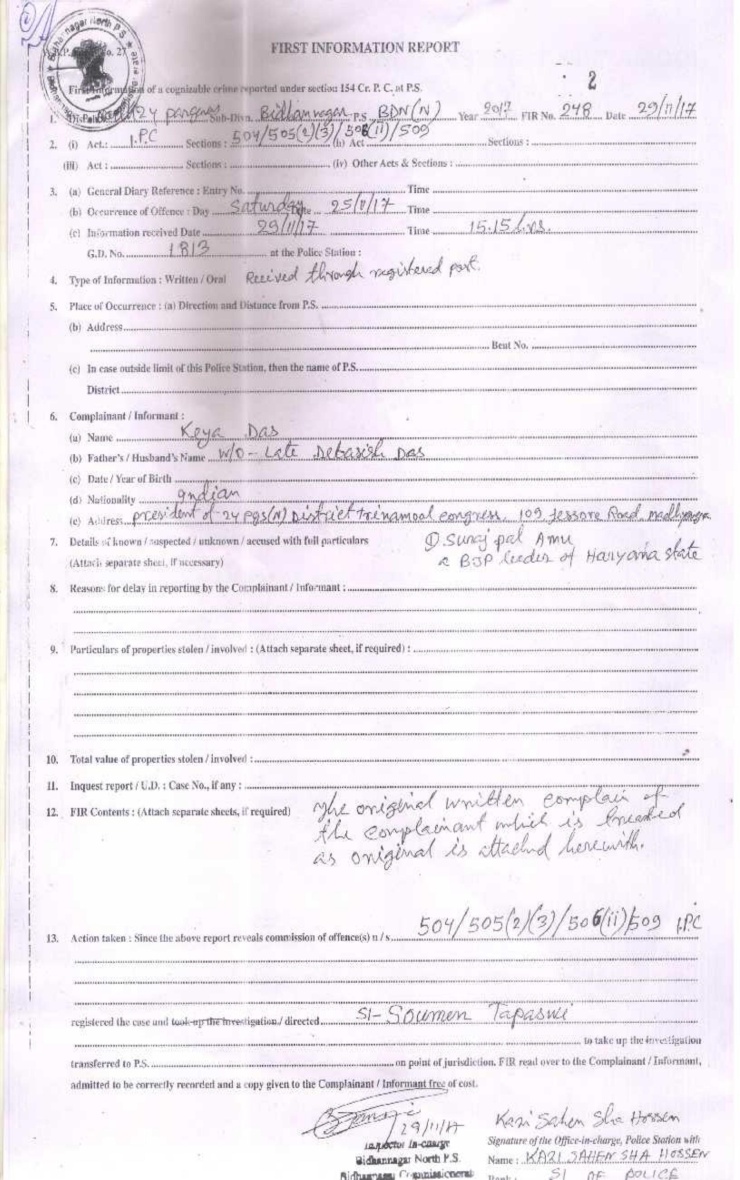 2
FIRST INFORMATION REPORT
First Information of a cognizable crime reported under section 154 Cr. P. C. at P.S.
1. Dist. North 24 parganas Sub-Divn. Bidhannagar P.S BDN(N) Year 2017 FIR No. 248 Date 29/11/17
2. (i) Act.: I.P.C Sections : 504/505(2)(3)/506(ii)/509 (ii) Act Sections :
(iii) Act : Sections : (iv) Other Acts & Sections :
3. (a) General Diary Reference : Entry No. Time
(b) Occurrence of Offence : Day Saturday Date 25/11/17 Time
(c) Information received Date 29/11/17 Time 15.15 hrs.
G.D. No. 1813 at the Police Station :
4. Type of Information : Written / Oral Recived through registered post.
5. Place of Occurrence : (a) Direction and Distance from P.S.
(b) Address
Beat No.
(c) In case outside limit of this Police Station, then the name of P.S.
District
6. Complainant / Informant :
(a) Name Keya Das
(b) Father's / Husband's Name W/O - Late Debasish Das
(c) Date / Year of Birth
(d) Nationality Indian
(e) Address president of 24 pgs(N) District Trinamool congress, 109 Jessore Road,
7. Details of known / suspected / unknown / accused with full particulars
(Attach separate sheet, if necessary)
① Suraj pal Amu
a BJP leeder of Haryana state
8. Reasons for delay in reporting by the Complainant / Informant :
9. Particulars of properties stolen / involved : (Attach separate sheet, if required) :
10. Total value of properties stolen / involved :
11. Inquest report / U.D. : Case No., if any :
12. FIR Contents : (Attach separate sheets, if required) The original written complain of
the complainant which is treated
as original is attached herewith.
13. Action taken : Since the above report reveals commission of offence(s) u / s 504/505(2)(3)/506(ii)/509 I.P.C
registered the case and took-up the investigation / directed SI- Soumen Tapaswi
to take up the investigation
transferred to P.S. on point of jurisdiction. FIR read over to the Complainant / Informant,
admitted to be correctly recorded and a copy given to the Complainant / Informant free of cost.
29/11/17
Inspector In-charge
Bidhannagar North P.S.
Bidhannagar Commissionerate
Kazi Sahen Sha Hossen
Signature of the Office-in-charge, Police Station with
Name : KAZI SAHEN SHA HOSSEN
Rank : SI OF POLICE